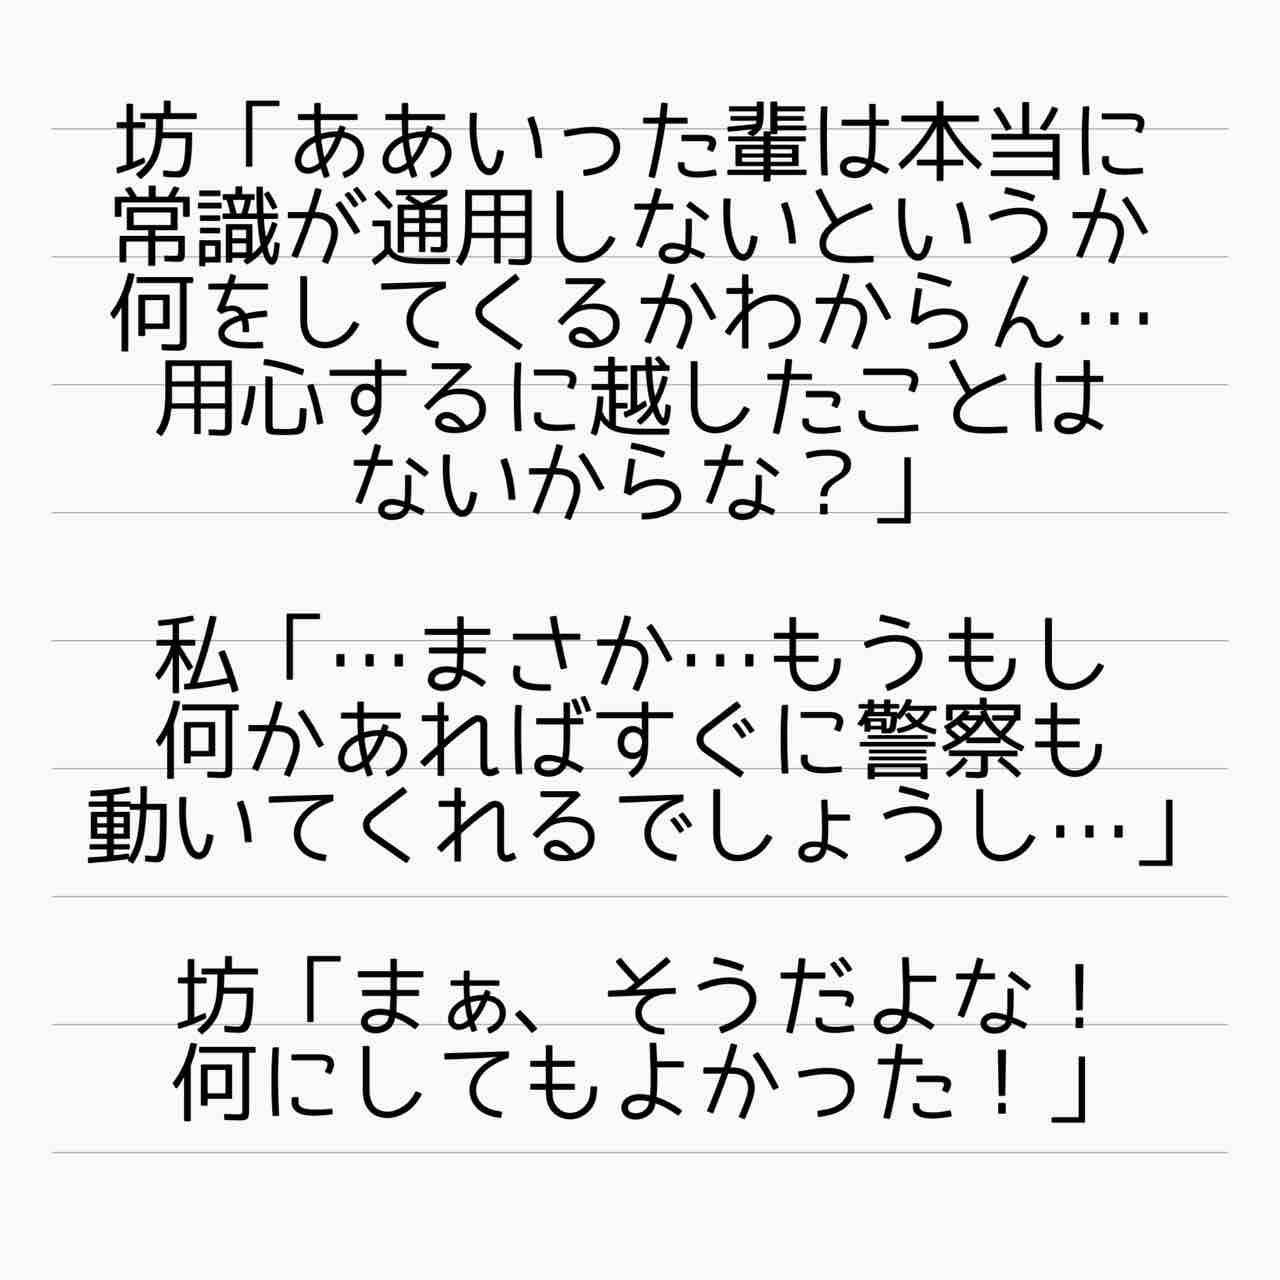 坊「ああいった輩は本当に
常識が通用しないというか
何をしてくるかわからん…
用心するに越したことは
ないからな？」
私「…まさか…もうもし
何かあればすぐに警察も
動いてくれるでしょうし…」
坊「まぁ、そうだよな！
何にしてもよかった！」